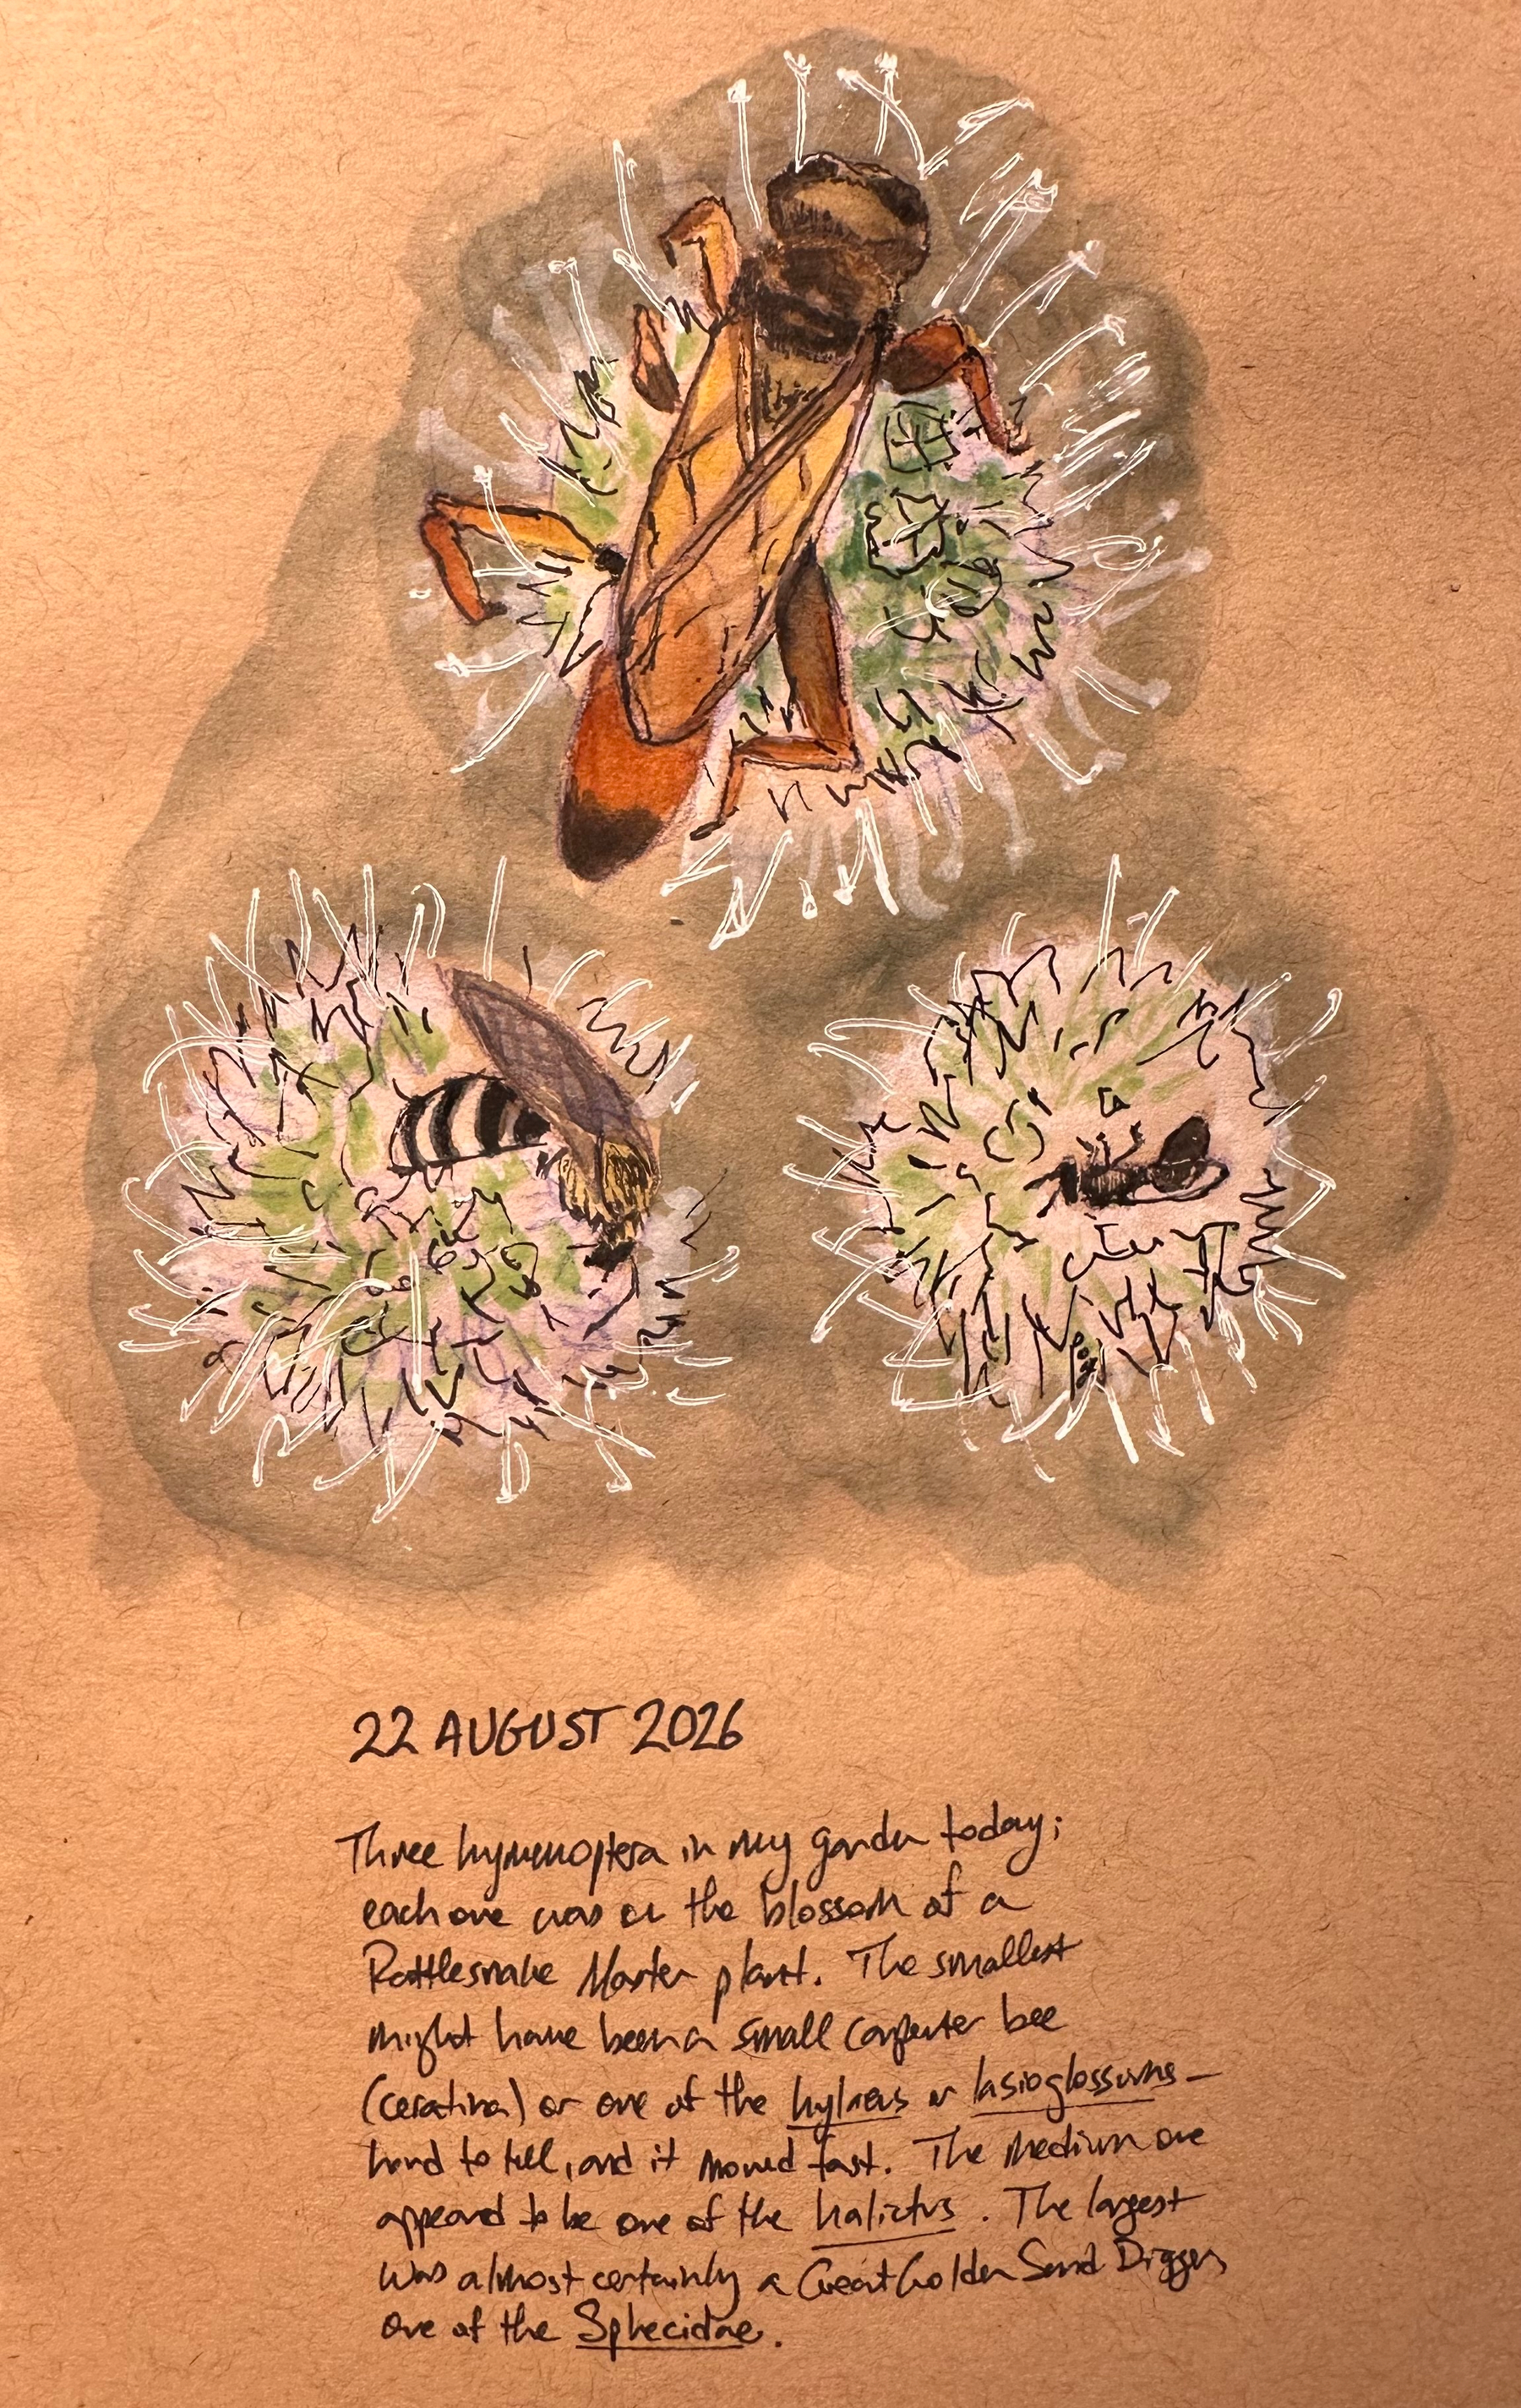 22 AUGUST 2026
Three hymenoptera in my garden today;
each one was on the blossom of a
Rattlesnake Master plant. The smallest
might have been a small carpenter bee
(ceratina) or one of the hylaeus or lasioglossums —
hard to tell, and it moved fast. The medium one
appeared to be one of the halictus. The largest
was almost certainly a Great Golden Sand Digger,
one of the Sphecidae.